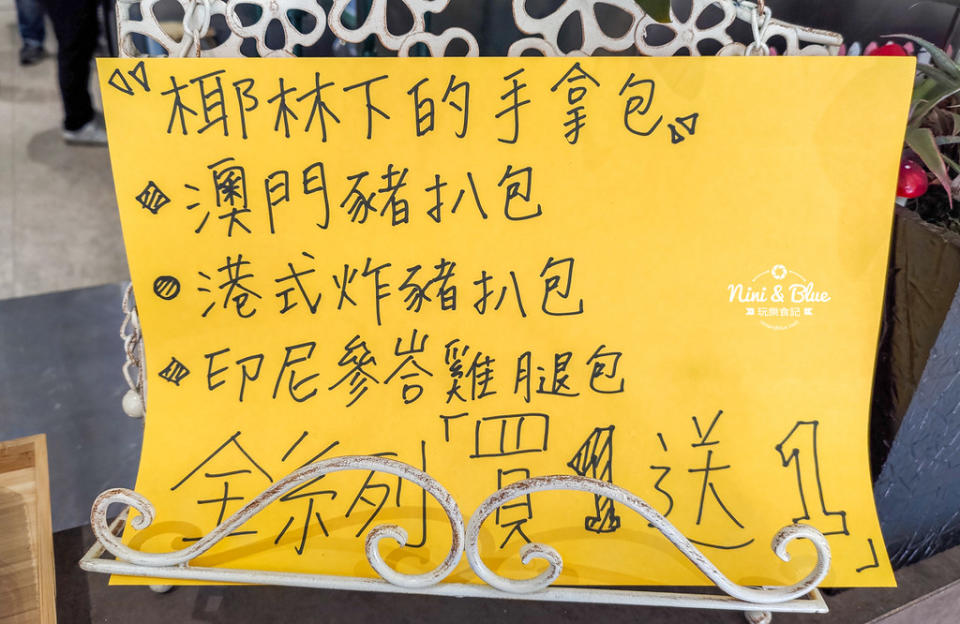 "椰林下的手拿包"
澳門豬扒包
港式炸豬扒包
印尼參峇雞腿包
全系列「買1送1」
Nini & Blue
玩樂食記